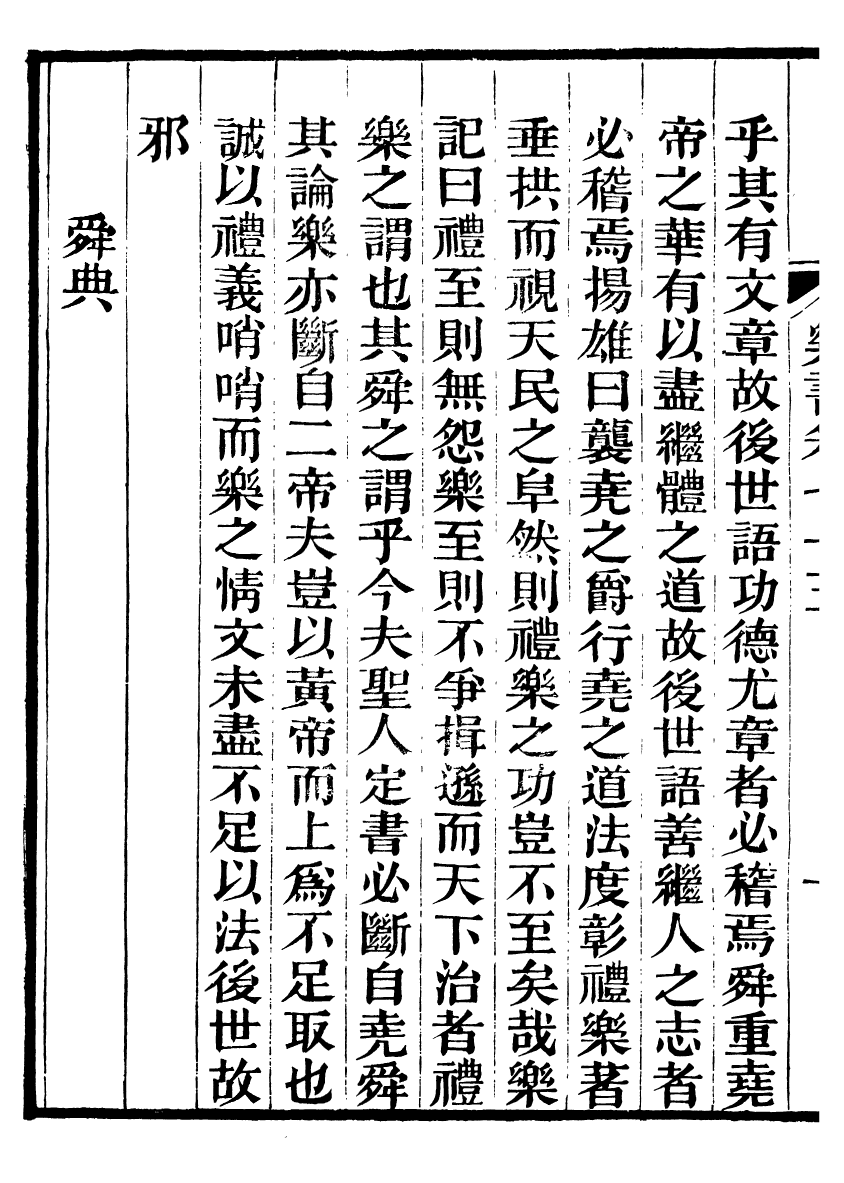 樂書卷七十三
一
乎其有文章故後世語功德尤章者必稽焉舜重堯
帝之華有以盡繼體之道故後世語善繼人之志者
必稽焉揚雄曰襲堯之爵行堯之道法度彰禮樂著
垂拱而視天民之阜然則禮樂之功豈不至矣哉樂
記曰禮至則無怨樂至則不爭揖遜而天下治者禮
樂之謂也其舜之謂乎今夫聖人定書必斷自堯舜
其論樂亦斷自二帝夫豈以黃帝而上為不足取也
誠以禮義哨哨而樂之情文未盡不足以法後世故
邪
舜典